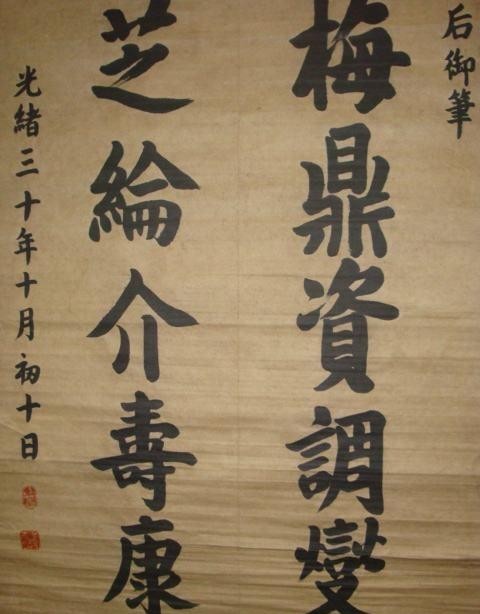 后御筆
梅鼎資調燮
芝綸介壽康
光緒三十年十月初十日